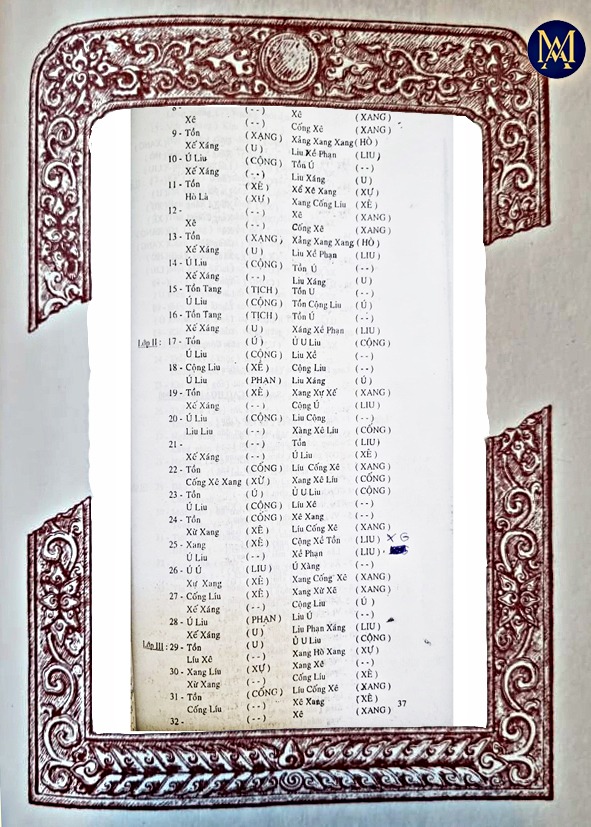 MA
8 - ( - - ) Xê (XANG)
Xê ( - - ) Cống Xê (XANG)
9 - Tồn (XANG) Xảng Xang Xang (HÒ)
Xế Xáng (U) Liu Xề Phạn (LIU)
10 - Ú Liu (CỘNG) Tồn Ú ( - - )
Xế Xáng ( - - ) Liu Xáng (U)
11 - Tồn (XÊ) Xể Xê Xang (XỰ)
Hò Là (XỰ) Xang Cống Liu (XÊ)
12 - ( - - ) Xê (XANG)
Xê ( - - ) Cống Xê (XANG)
13 - Tồn (XANG) Xảng Xang Xang (HÒ)
Xế Xáng (U) Liu Xề Phạn (LIU)
14 - Ú Liu (CỘNG) Tồn Ú ( - - )
Xế Xáng ( - - ) Liu Xáng (U)
15 - Tồn Tang (TỊCH) Tồn U ( - - )
Ú Liu (CỘNG) Tồn Cộng Liu (Ú)
16 - Tồn Tang (TỊCH) Tồn Ú ( - - )
Xế Xáng (U) Xáng Xẻ Phạn (LIU)
Lớp II : 17 - Tồn (Ú) Ú U Liu (CỘNG)
Ú Liu (CỘNG) Liu Xề ( - - )
18 - Cộng Liu (XÊ) Cộng Liu ( - - )
Ú Liu (PHAN) Liu Xáng (Ú)
19 - Tồn (XÊ) Xang Xự Xế (XANG)
Xế Xáng ( - - ) Cộng Ú (LIU)
20 - Ú Liu (CỘNG) Liu Cộng ( - - )
Liu Liu ( - - ) Xàng Xê Liu (CỐNG)
21 - ( - - ) Tồn (LIU)
Xế Xáng ( - - ) Ú Liu (XÊ)
22 - Tồn (CỐNG) Líu Cống Xê (XANG)
Cống Xê Xang (XỪ) Xang Xê Líu (CỐNG)
23 - Tồn (Ú) Ú U Liu (CỘNG)
Ú Liu (CỘNG) Líu Xê ( - - )
24 - Tồn (CỐNG) Xê Xang ( - - )
Xừ Xang (XÊ) Líu Cống Xê (XANG)
25 - Xang (XÊ) Cộng Xề Tồn (LIU) X G
Ú Liu ( - - ) Xề Phạn (LIU)
26 - Ú Ú (LIU) Ú Xàng ( - - )
Xự Xang (XÊ) Xang Cống Xê (XANG)
27 - Cống Líu (XÊ) Xang Xừ Xê (XANG)
Xế Xáng ( - - ) Cộng Liu (Ú)
28 - Ú Liu (PHẠN) Liu Ú ( - - )
Xế Xáng (U) Liu Phạn Xáng (LIU)
Lớp III : 29 - Tồn (U) Ú U Liu (CỘNG)
Líu Xê ( - - ) Xang Hò Xang (XỰ)
30 - Xang Líu (XỰ) Xang Xê ( - - )
Xừ Xang ( - - ) Cống Líu (XÊ)
31 - Tồn (CỐNG) Líu Cống Xê (XANG)
Cống Líu ( - - ) Xê Xang (XÊ)
32 - ( - - ) Xê (XANG)
37